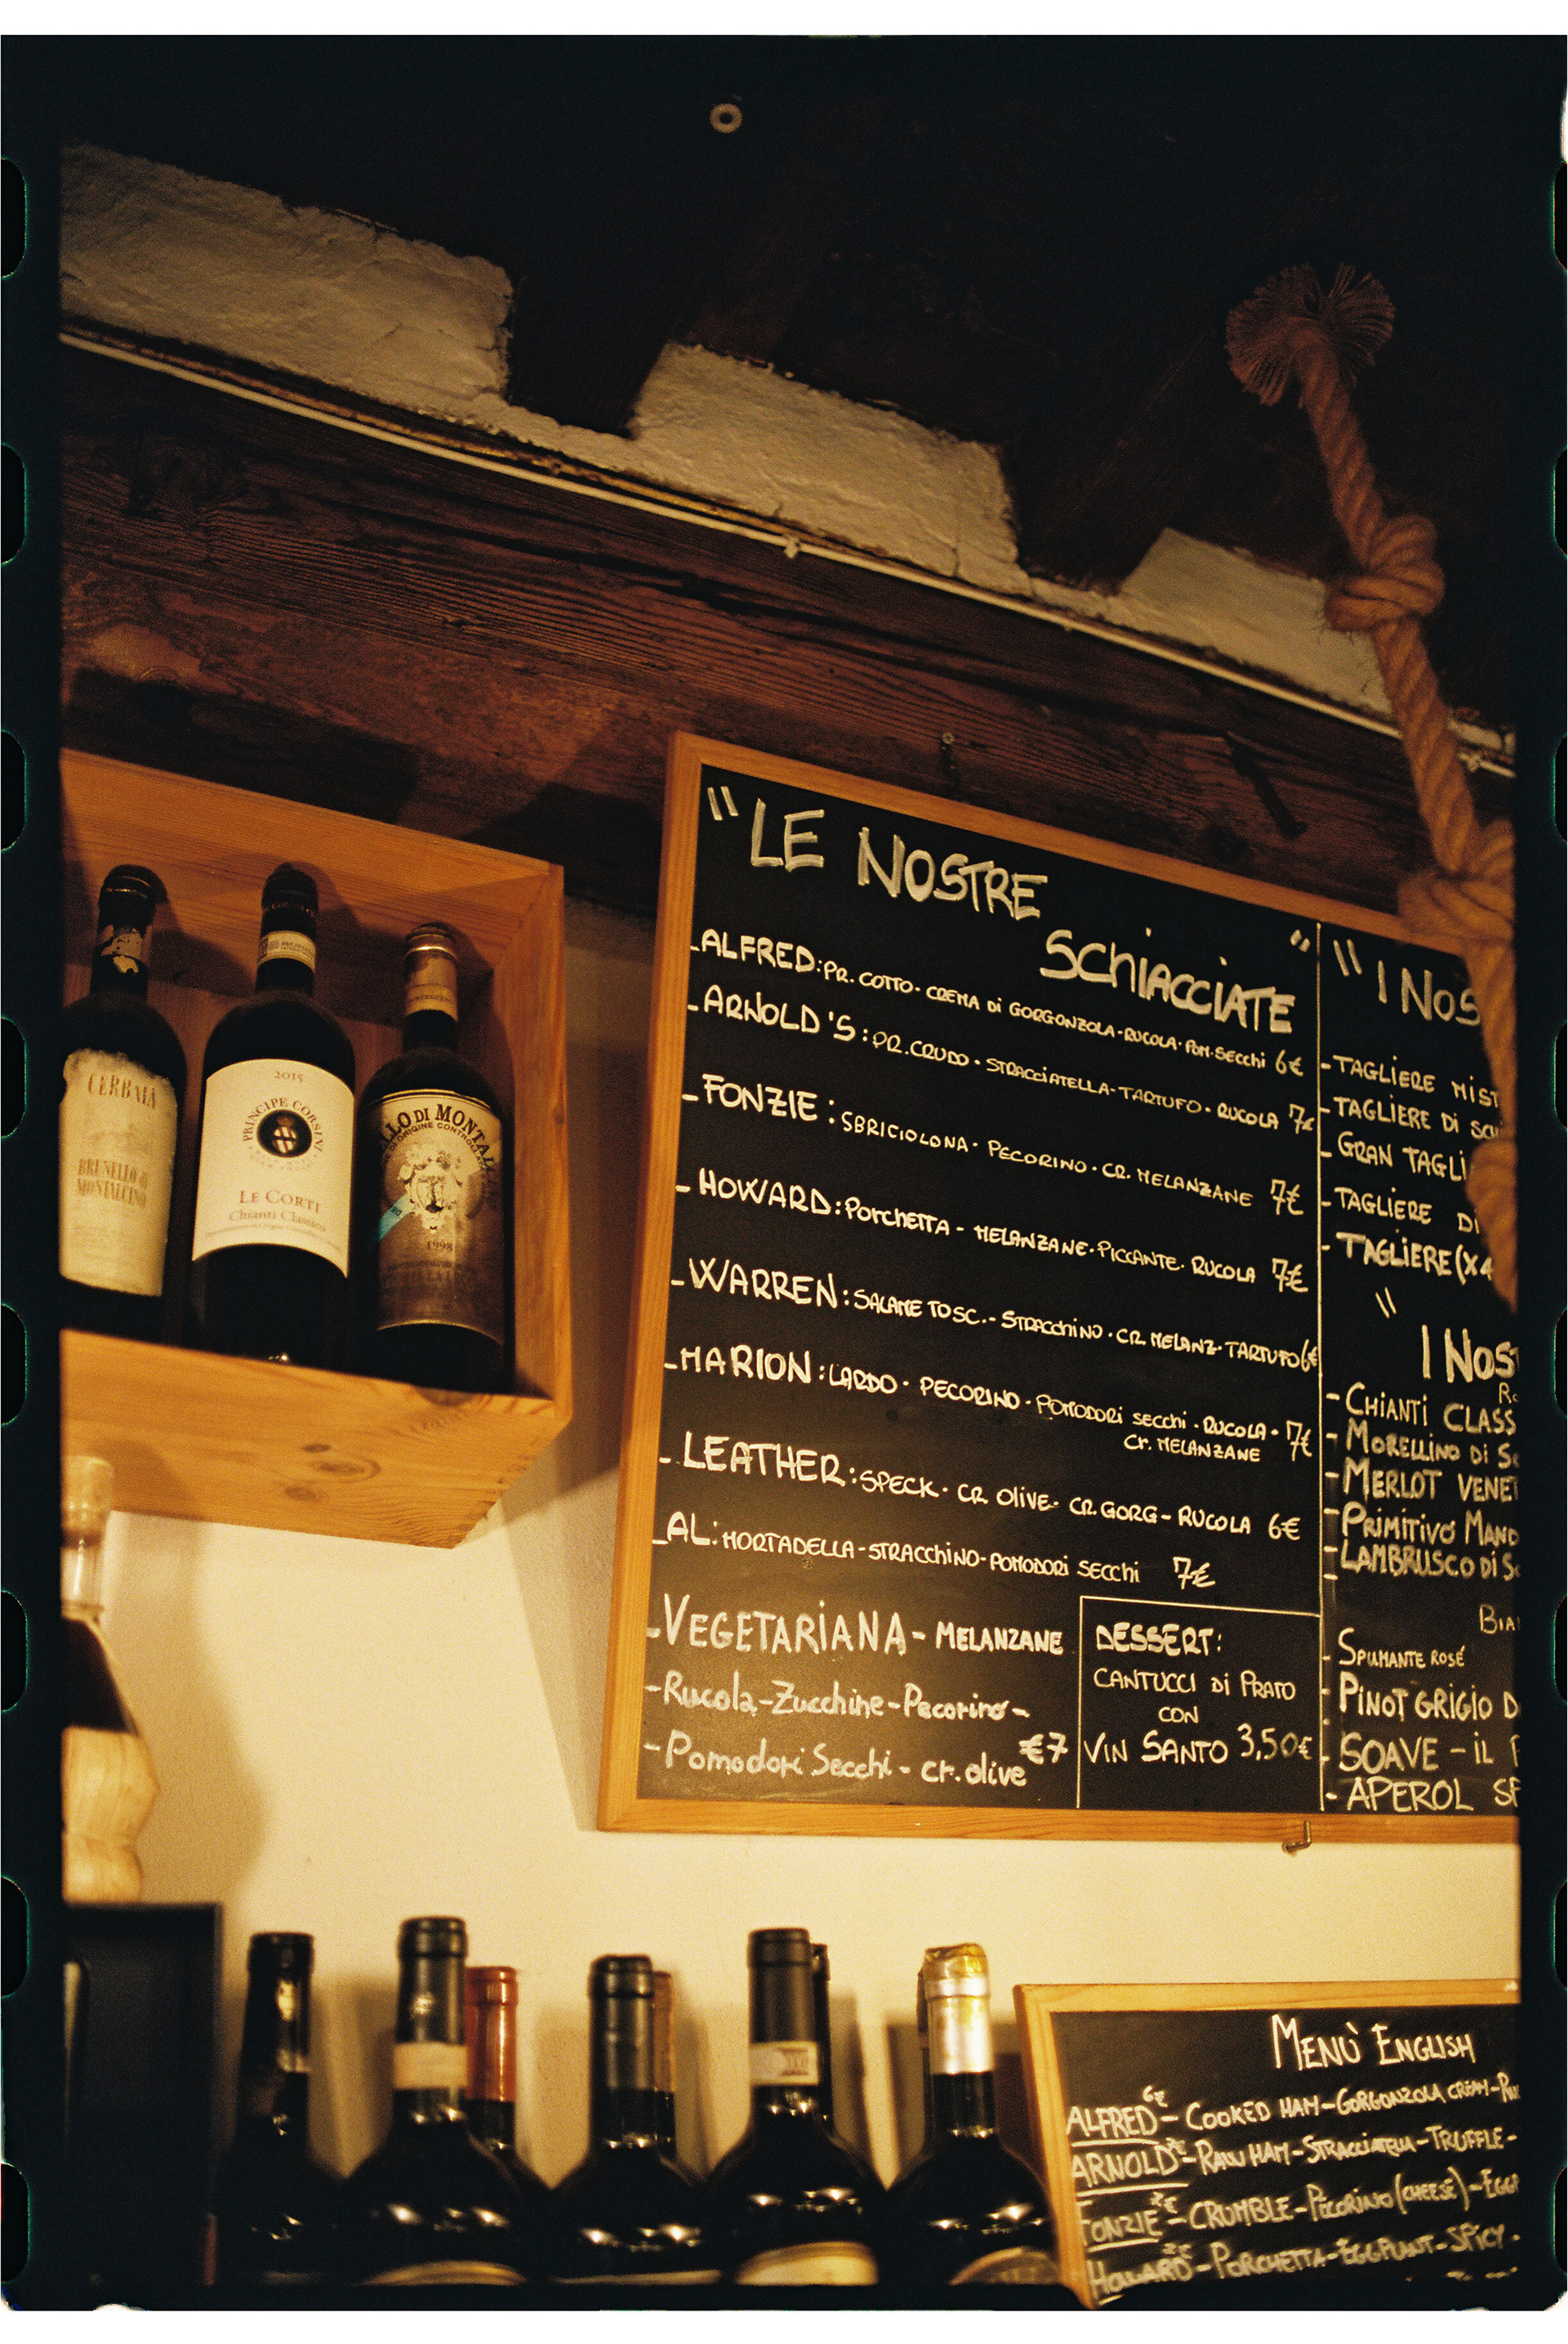 "LE NOSTRE
SCHIACCIATE"
-ALFRED: PR. COTTO - CREMA DI GORGONZOLA - RUCOLA - POM. SECCHI 6€
-ARNOLD'S: PR. CRUDO - STRACCIATELLA - TARTUFO - RUCOLA 7€
-FONZIE: SBRICIOLONA - PECORINO - CR. MELANZANE 7€
-HOWARD: PORCHETTA - MELANZANE - PICCANTE - RUCOLA 7€
-WARREN: SALAME TOSC. - STRACCHINO - CR. MELANZ - TARTUFO 6€
-MARION: LARDO - PECORINO - POMODORI SECCHI - RUCOLA - 7€
CR. MELANZANE
-LEATHER: SPECK - CR OLIVE - CR. GORG - RUCOLA 6€
-AL: MORTADELLA - STRACCHINO - POMODORI SECCHI 7€
-VEGETARIANA - MELANZANE
-Rucola - Zucchine - Pecorino -
-Pomodori Secchi - cr. olive €7
DESSERT:
CANTUCCI DI PRATO
CON
VIN SANTO 3,50€
"I NOS
-TAGLIERE MIST
-TAGLIERE DI
-GRAN TAGLI
-TAGLIERE DI
-TAGLIERE (X4
"
I NOST
-CHIANTI CLASS
-MORELLINO DI
-MERLOT VENE
-PRIMITIVO
-LAMBRUSCO DI
BIA
-SPUMANTE ROSÉ
-PINOT GRIGIO
-SOAVE - IL
-APEROL SP
CERBAIA
BRUNELLO di
MONTALCINO
2015
PRINCIPE CORSINI
LE CORTI
Chianti Classico
LLO DI MONTAL
DI ORIGINE CONTROLLATA
1998
MENÙ ENGLISH
6€
ALFRED - COOKED HAM - GORGONZOLA CREAM -
7€
ARNOLD - RAW HAM - STRACCIATELLA - TRUFFLE -
7€
FONZIE - CRUMBLE - PECORINO (CHEESE) - EGG
7€
HOWARD - PORCHETTA - EGGPLANT - SPICY -